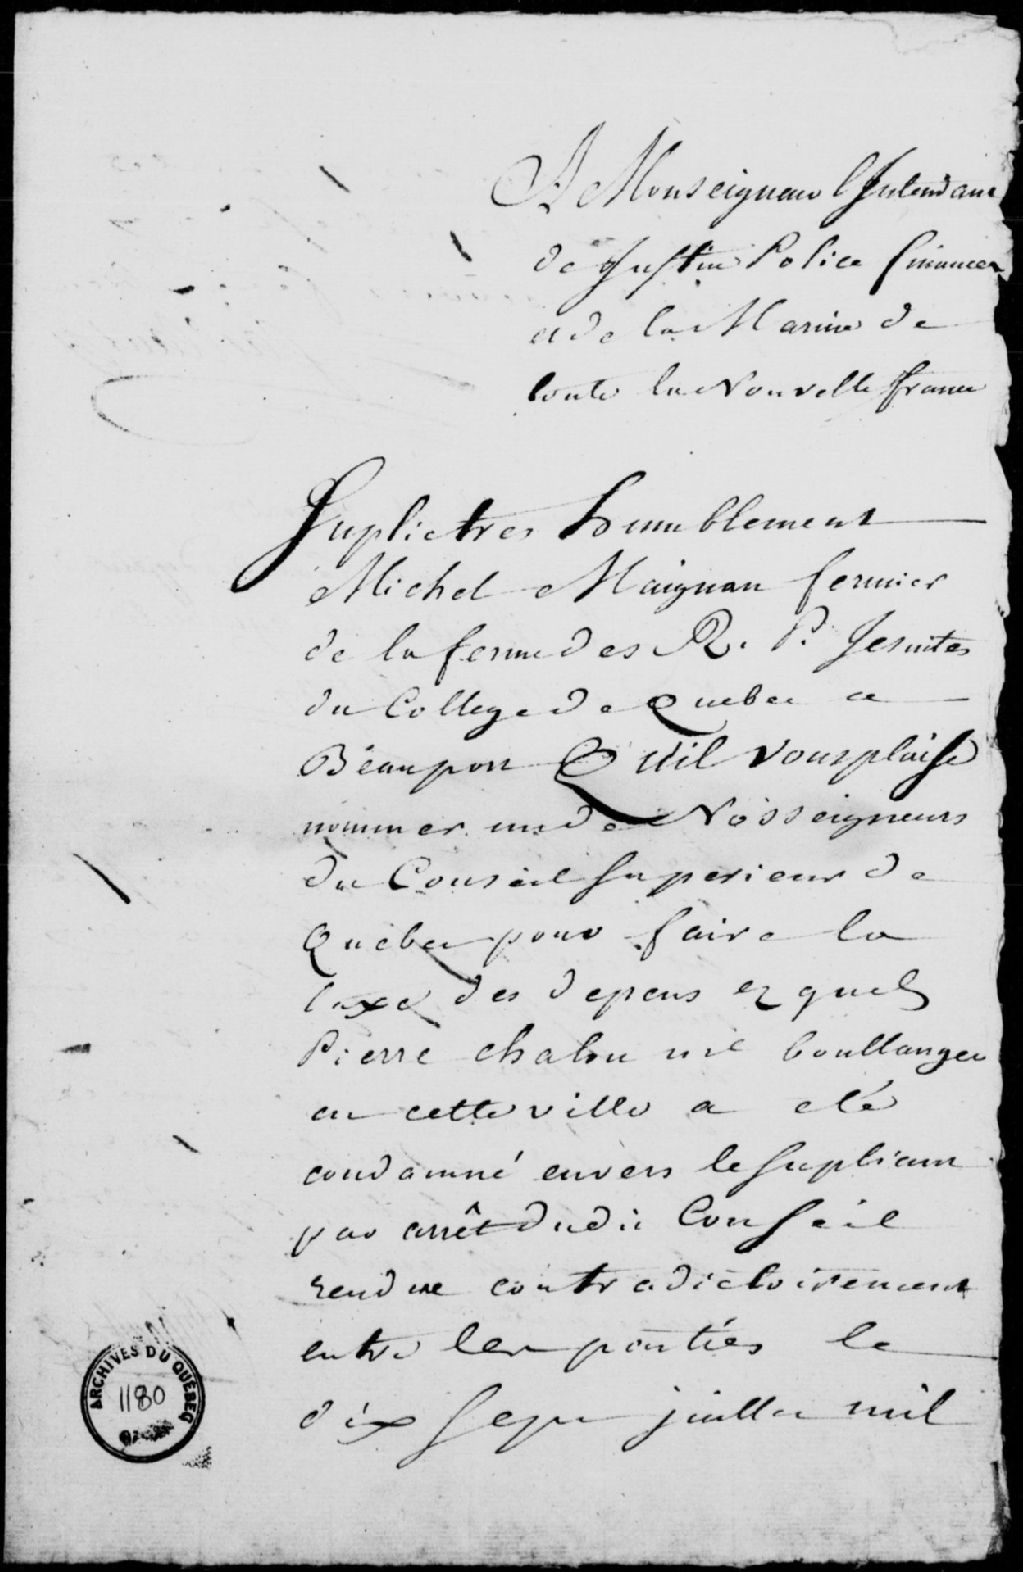 A Monseigneur l'Intendant
de Justice Police finances
et de la Marine de
toute la Nouvelle france
Suplie tres humblement
Michel Maignan fermier
de la ferme des R. P. Jesuites
du College de Quebec a
Beauport Quil vous plaise
nommer un de Nosseigneurs
du Conseil Superieur de
Quebec pour faire la
taxe des depens ezquels
Pierre chalou me boullanger
en cette ville a eté
condamné envers le supliant
par arrêt dudit Conseil
rendue contradictoirement
entre les parties le
dix sept juillet mil
ARCHIVES DU QUÉBEC
1180